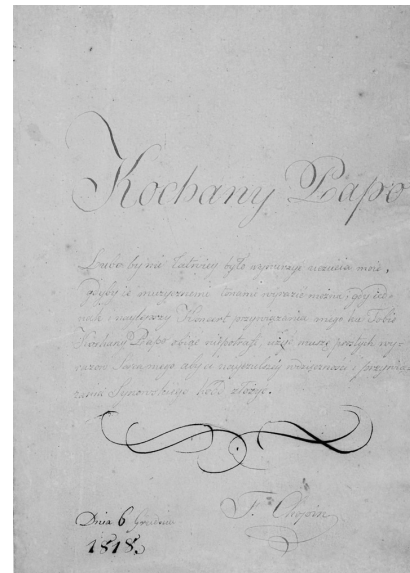 Kochany Papo
Lubo by mi łatwiéy było wynurzyć uczucia moie,
gdyby ie muzycznemi tonami wyrazić można, gdy ied-
nak i naylepszy Koncert przywiązania mego ku Tobie
Kochany Papo obiąć niepotrafi, użyć muszę prostych wy-
razów Serca mego aby ci nayczulszéy wdzięczności i przywią-
zania Synowskiego hołd złożyć.
F. Chopin
Dnia 6 Grudnia
1818.